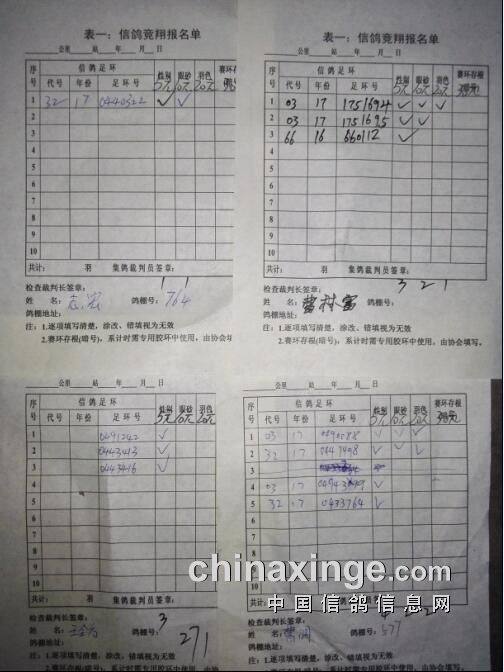 表一：信鸽竞翔报名单
公里 站 年 月 日
序号 信鸽足环 性别 眼砂 羽色 赛环存根
代号 年份 足环号 5元 10元 20元
1 32 17 0440322 ✓ ✓
2
3
4
5
6
7
8
9
10
共计： 羽 集鸽裁判员签章：
1 1
检查裁判长签章：
姓 名： 鸽棚号： 764
鸽棚地址：
注：1.逐项填写清楚，涂改、错填视为无效
2.赛环存根(暗号)，系计时需专用胶环中使用，由协会填
表一：信鸽竞翔报名单
公里 站 年 月 日
序号 信鸽足环 性别 眼砂 羽色 赛环存根
代号 年份 足环号 5元 10元 20元
1 03 17 1751694 ✓ ✓ ✓
2 03 17 1751695 ✓ ✓
3 66 16 660112 ✓
4
5
6
7
8
9
10
共计： 羽 集鸽裁判员签章：
3 2 1
检查裁判长签章：
姓 名： 鸽棚号：
鸽棚地址：
注：1.逐项填写清楚，涂改、错填视为无效
2.赛环存根(暗号)，系计时需专用胶环中使用，由协会填写。
公里 站 年 月 日
序号 信鸽足环 性别 眼砂 羽色 赛环存根
代号 年份 足环号 5元 10元 20元
1 0491242 ✓
2 0443413 ✓
3 0443416 ✓
4
5
6
7
8
9
10
共计： 羽 集鸽裁判员签章：
3
检查裁判长签章：
姓 名： 鸽棚号： 271
鸽棚地址：
注：1.逐项填写清楚，涂改、错填视为无效
2.赛环存根(暗号)，系计时需专用胶环中使用，由协会
公里 站 年 月 日
序号 信鸽足环 性别 眼砂 羽色 赛环存根
代号 年份 足环号 5元 10元 20元
1 03 17 0490088 ✓ ✓ ✓
2 32 17 0447498 ✓ ✓ ✓
3
4 03 17 ✓
5 32 17 0433764 ✓
6
7
8
9
10
共计： 羽 集鸽裁判员签章：
检查裁判长签章：
姓 名： 鸽棚号： 577
鸽棚地址：
注：1.逐项填写清楚，涂改、错填视为无效
2.赛环存根(暗号)，系计时需专用胶环中使用，由协会填写。
chinaxinge.com
中国信鸽信息网